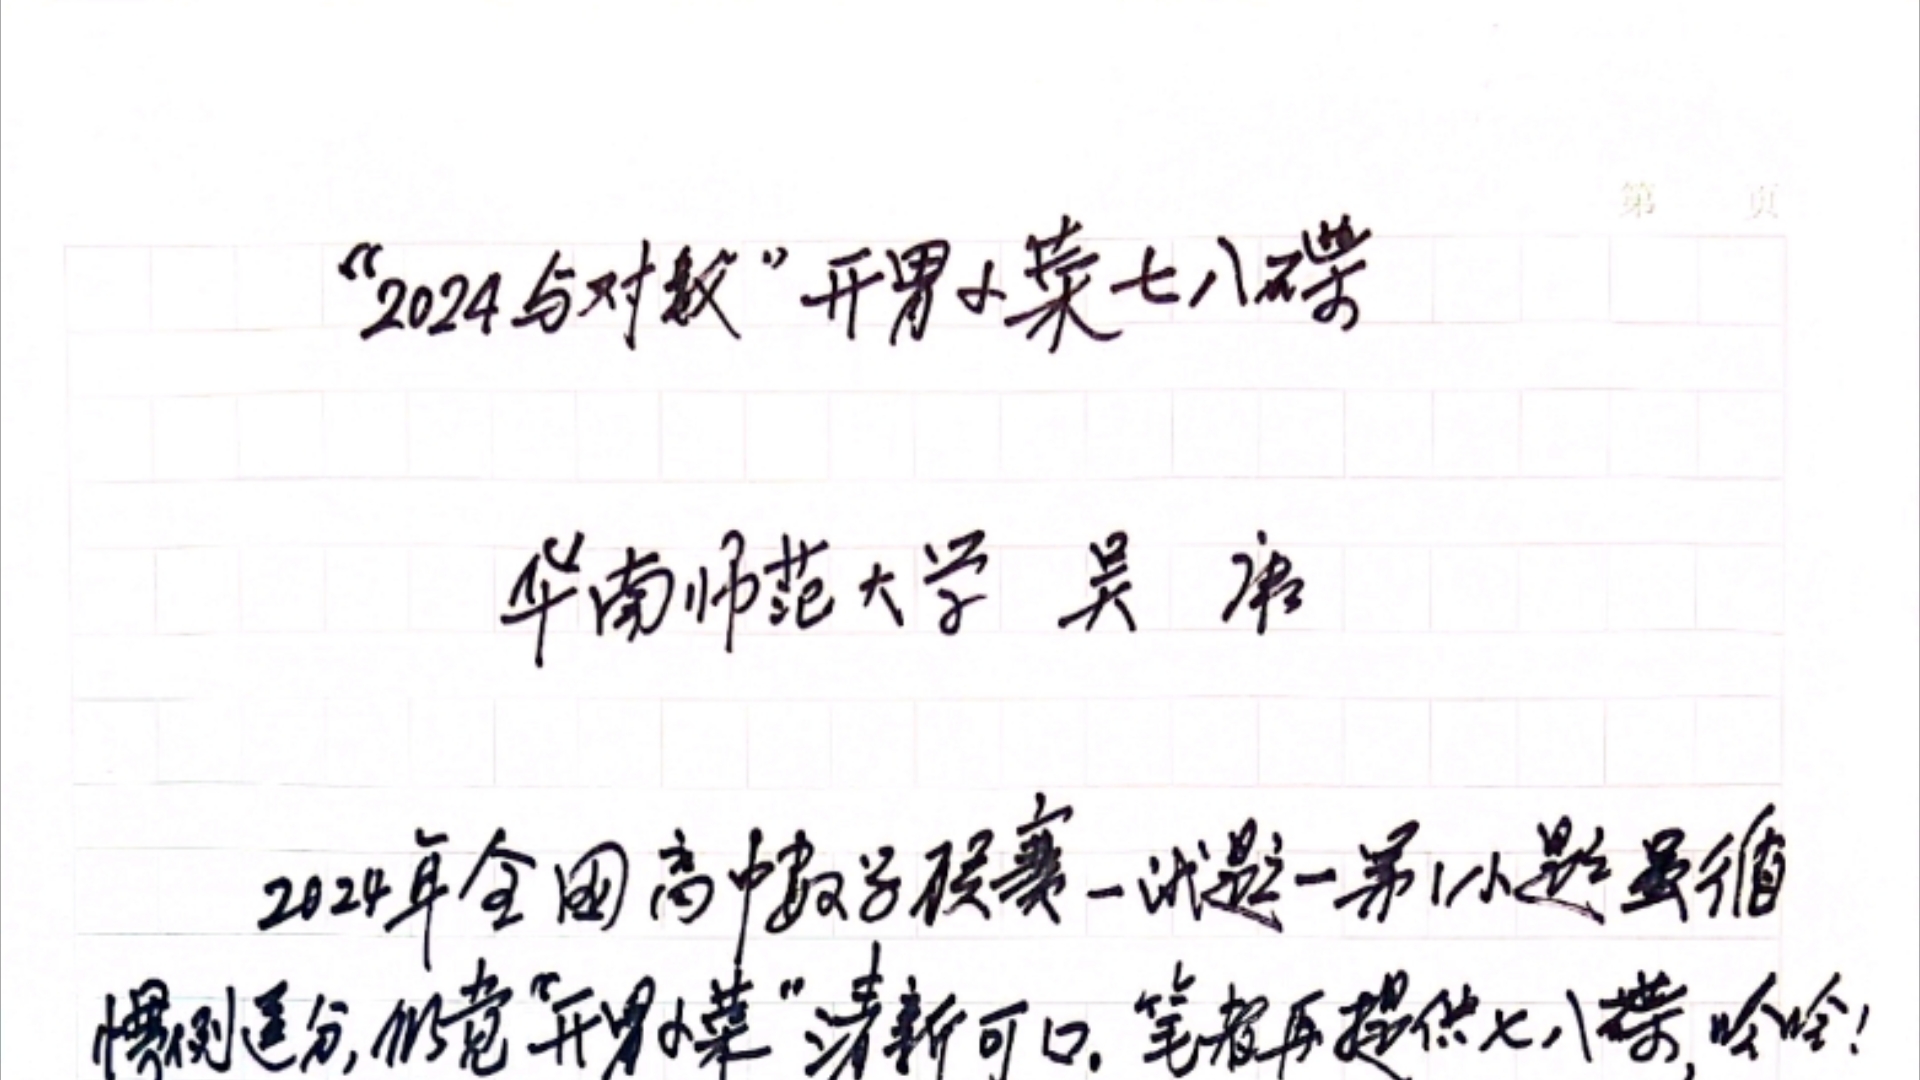 第 页
“2024与对数”开胃小菜七八碟
华南师范大学 吴 康
2024年全国高中数学联赛一试题一第1小题虽循
惯例送分,仍觉“开胃小菜”清新可口.笔者再提供七八碟,哈哈!